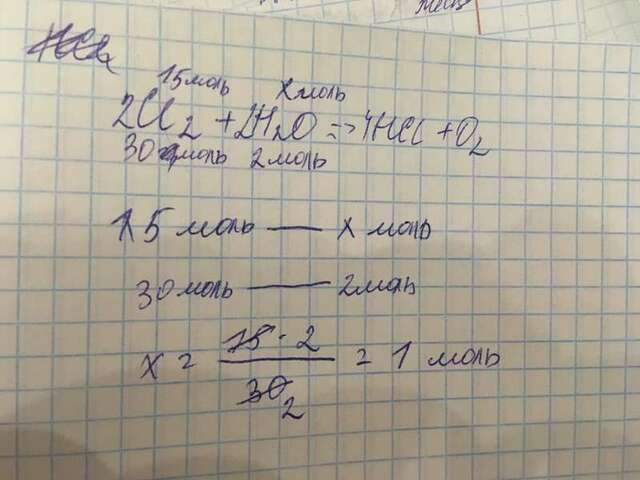 15 моль x моль
2Cl2 + 2H2O => 4HCl + O2
30 моль 2 моль
15 моль — x моль
30 моль — 2 моль
x = 15 · 2 / 30 = 1 моль
2